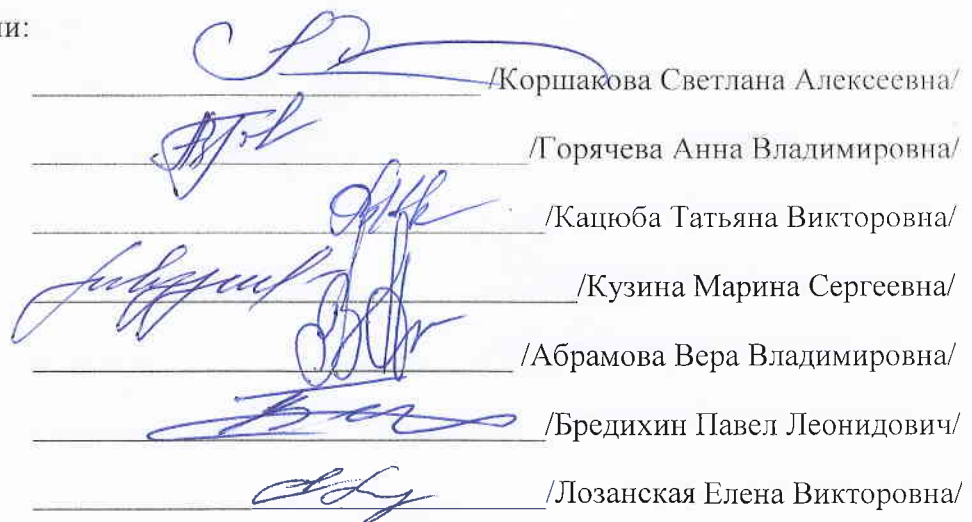 ии:
/Коршакова Светлана Алексеевна/
/Горячева Анна Владимировна/
/Кацюба Татьяна Викторовна/
/Кузина Марина Сергеевна/
/Абрамова Вера Владимировна/
/Бредихин Павел Леонидович/
/Лозанская Елена Викторовна/